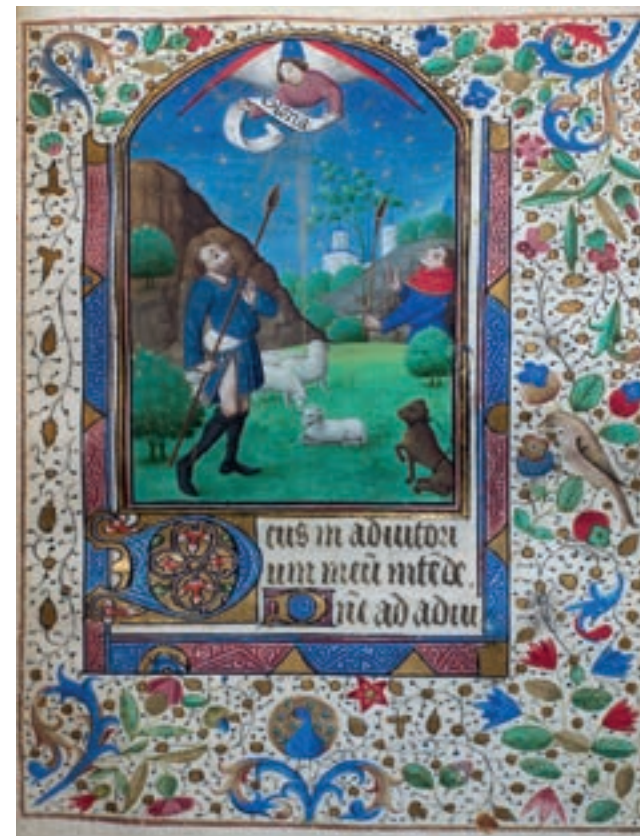 Deus in adiutori
um meū intēde.
Dn̄e ad adiu